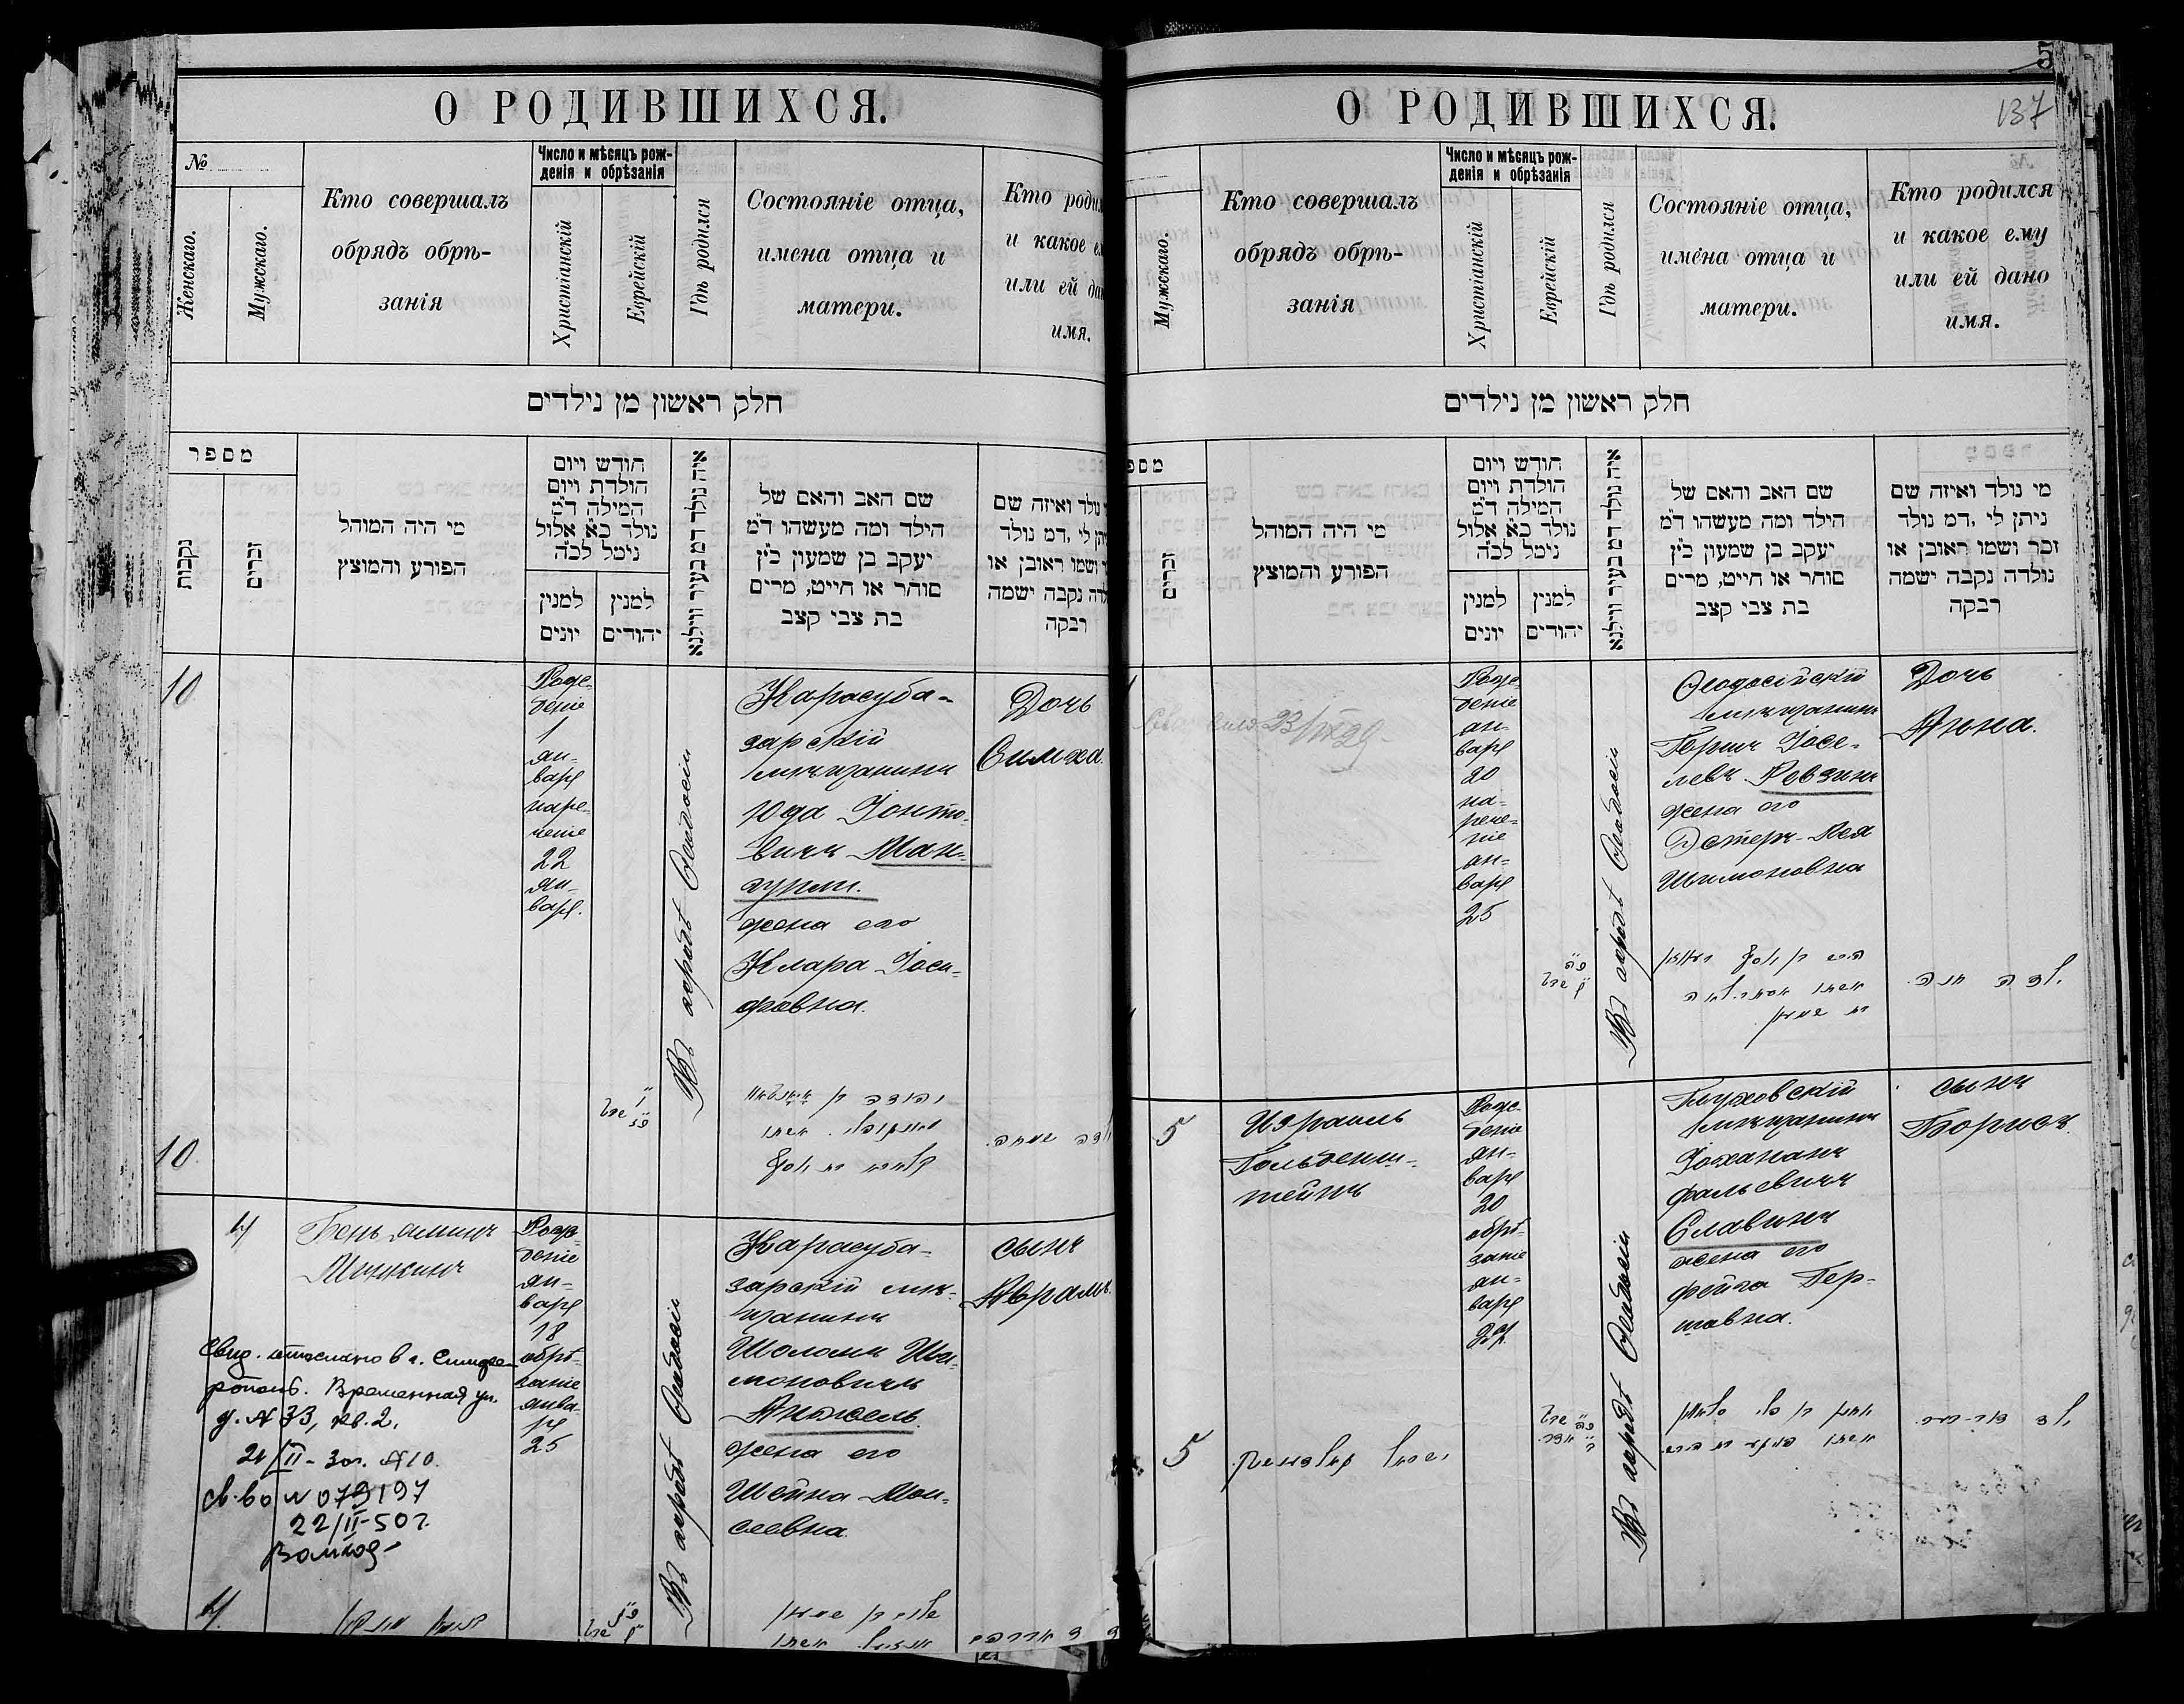 О РОДИВШИХСЯ.
№
Женскаго.
Мужскаго.
Кто совершалъ
обрядъ обрѣ-
занія
Число и мѣсяцъ рож-
денія и обрѣзанія
Христіанскій
Еврейскій
Гдѣ родился
Состояніе отца,
имена отца и
матери.
Кто родил
и какое е
или ей да
имя.
חלק ראשון מן נילדים
מספר
נקבות
זכרים
מי היה המוהל
הפורע והמוצץ
חודש ויום
הולדת ויום
המילה ד"מ
נולד כא אלול
נימל לכ"ה
למנין
יונים
למנין
יהודים
איה נולד דמ בעיר ווילנא
שם האב והאם של
הילד ומה מעשהו ד"מ
יעקב בן שמעון כ"ץ
סוחר או חייט, מרים
בת צבי קצב
נולד ואיזה שם
לי ,דמ נולד
ושמו ראובן או
נקבה ישמה
רבקה
10
Рож-
деніе
1
ян-
варя
наре-
ченіе
22
ян-
варя.
Въ городѣ Ѳеодосіи
Карасуба-
зарскій
мѣщанинъ
Юда Іонто-
вичъ Ман-
гупли.
жена его
Клара Іоси-
фовна.
Дочь
Симха.
10.
4
Беньяминъ
Рож-
деніе
ян-
варя
18
обрѣ-
заніе
янва-
ря
25
Въ городѣ Ѳеодосіи
Карасуба-
зарскій мѣ-
щанинъ
Шоломъ Ши-
моновичъ
Анжель.
жена его
Шейна Мои-
сеевна.
сынъ
Абрамъ.
Свид. отослано в г. Симфе-
рополь. Временная ул.
д. № 33, кв. 2.
21/II-30г. №10.
св-во № 079197
22/II-50 г.
4.
О РОДИВШИХСЯ.
5
137
Мужскаго.
Кто совершалъ
обрядъ обрѣ-
занія
Число и мѣсяцъ рож-
денія и обрѣзанія
Христіанскій
Еврейскій
Гдѣ родился
Состояніе отца,
имена отца и
матери.
Кто родился
и какое ему
или ей дано
имя.
חלק ראשון מן נילדים
מספ
זכרים
מי היה המוהל
הפורע והמוצץ
חודש ויום
הולדת ויום
המילה ד"מ
נולד כא אלול
נימל לכ"ה
למנין
יונים
למנין
יהודים
איה נולד דמ בעיר ווילנא
שם האב והאם של
הילד ומה מעשהו ד"מ
יעקב בן שמעון כ"ץ
סוחר או חייט, מרים
בת צבי קצב
מי נולד ואיזה שם
ניתן לי ,דמ נולד
זכר ושמו ראובן או
נולדה נקבה ישמה
רבקה
Рож-
деніе
ян-
варя
20
на-
рече-
ніе
ян-
варя
25
Въ городѣ Ѳеодосіи
Ѳеодосійскій
мѣщанинъ
Гершъ Іосе-
левъ Ревзинъ
жена его
Эстеръ-Лея
Шимоновна
Дочь
Анна.
5
Израиль
Гольденш-
тейнъ
Рож-
деніе
ян-
варя
20
обрѣ-
заніе
ян-
варя
27.
Въ городѣ Ѳеодосіи
Глуховскій
мѣщанинъ
Іохананъ
Фальевичъ
Славинъ
жена его
Фейга Гер-
шовна.
сынъ
Борисъ.
5